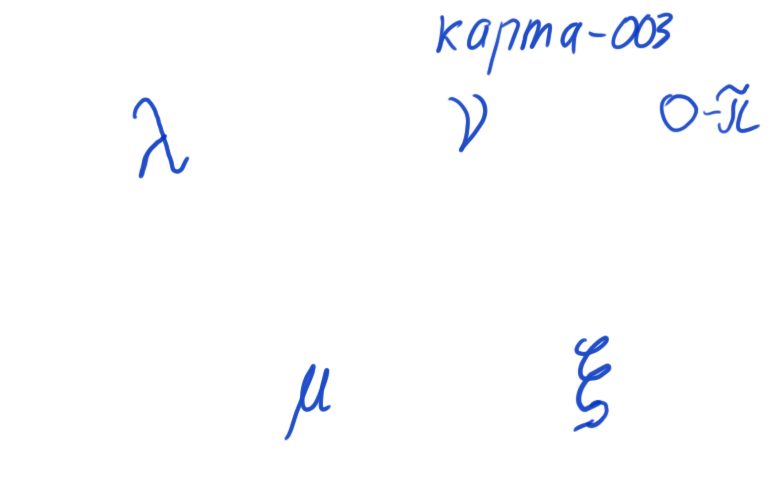 карта-003
λ ν о-π
μ ξ